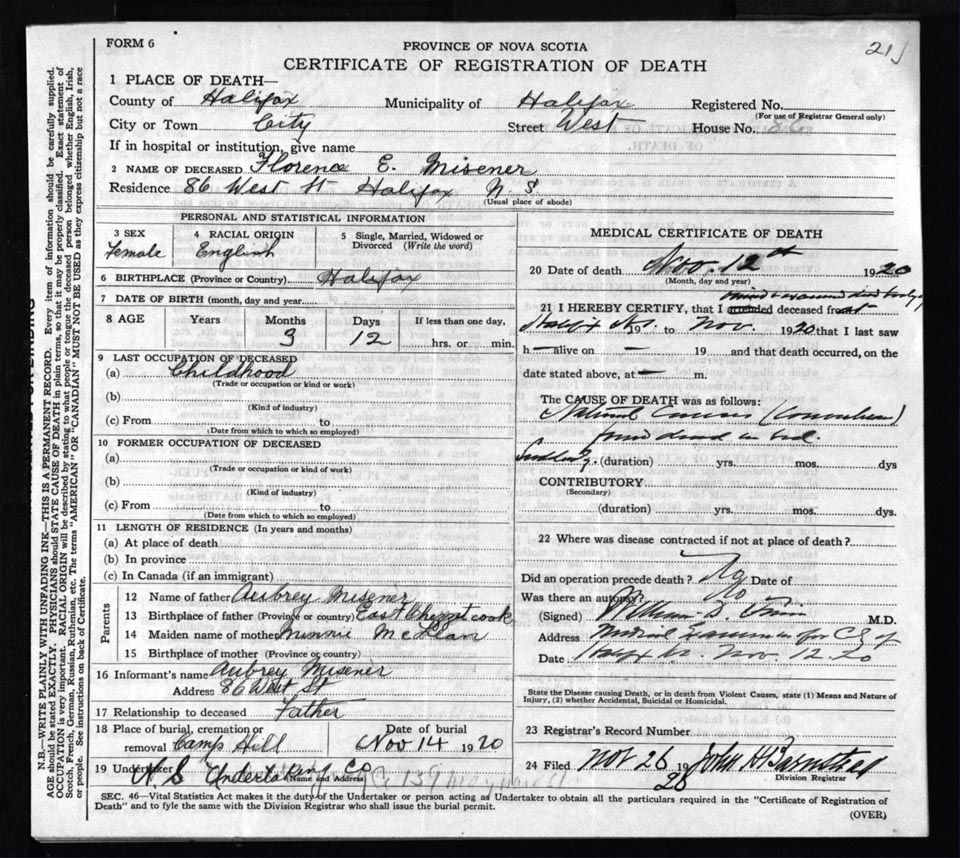 FORM 6
21
PROVINCE OF NOVA SCOTIA
CERTIFICATE OF REGISTRATION OF DEATH
1 PLACE OF DEATH—
County of Halifax Municipality of Halifax Registered No.
(For use of Registrar General only)
City or Town City Street West House No. 86
If in hospital or institution, give name
2 NAME OF DECEASED Florence E. Misener
Residence 86 West St Halifax N. S
(Usual place of abode)
PERSONAL AND STATISTICAL INFORMATION
3 SEX Female
4 RACIAL ORIGIN English
5 Single, Married, Widowed or Divorced (Write the word)
6 BIRTHPLACE (Province or Country) Halifax
7 DATE OF BIRTH (month, day and year)
8 AGE Years Months 3 Days 12 If less than one day, hrs. or min.
9 LAST OCCUPATION OF DECEASED
(a) Childhood
(Trade or occupation or kind or work)
(b)
(Kind of industry)
(c) From to
(Date from which to which so employed)
10 FORMER OCCUPATION OF DECEASED
(a)
(Trade or occupation or kind of work)
(b)
(Kind of industry)
(c) From to
(Date from which to which so employed)
11 LENGTH OF RESIDENCE (In years and months)
(a) At place of death
(b) In province
(c) In Canada (if an immigrant)
Parents
12 Name of father Aubrey Misener
13 Birthplace of father (Province or country) East Chezzetcook
14 Maiden name of mother Minnie McLean
15 Birthplace of mother (Province or country)
16 Informant's name Aubrey Misener
Address 86 West St
17 Relationship to deceased Father
18 Place of burial, cremation or removal Camp Hill
Date of burial Nov 14 1920
19 Undertaker N. S Undertaking Co
Name and Address
MEDICAL CERTIFICATE OF DEATH
20 Date of death Nov. 12th 1920
(Month, day and year)
21 I HEREBY CERTIFY, that I attended deceased from
19 to Nov. 1920 that I last saw
h— alive on — 19 and that death occurred, on the
date stated above, at — m.
The CAUSE OF DEATH was as follows:
Natural Causes
found dead in bed.
(duration) yrs. mos. dys
CONTRIBUTORY
(Secondary)
(duration) yrs. mos. dys.
22 Where was disease contracted if not at place of death?
Did an operation precede death? No Date of
Was there an autopsy? No
(Signed) William D. M.D.
Address Medical Examiner for C of
Date Nov 12. 20
State the Disease causing Death, or in death from Violent Causes, state (1) Means and Nature of
Injury, (2) whether Accidental, Suicidal or Homicidal.
23 Registrar's Record Number
24 Filed Nov 26 1920 John H Barnstead
Division Registrar
SEC. 46—Vital Statistics Act makes it the duty of the Undertaker or person acting as Undertaker to obtain all the particulars required in the "Certificate of Registration of
Death" and to fyle the same with the Division Registrar who shall issue the burial permit.
(OVER)
N.B.—WRITE PLAINLY WITH UNFADING INK—THIS IS A PERMANENT RECORD. Every item of information should be carefully supplied.
AGE should be stated EXACTLY. PHYSICIANS should STATE CAUSE OF DEATH in plain terms, so that it may be properly classified. Exact statement of
OCCUPATION is very important. RACIAL ORIGIN will be described by stating to what people or tongue the deceased person belonged whether English, Irish,
Scotch, French, German, Russian, Ruthenian, etc. The terms "AMERICAN" OR "CANADIAN" MUST NOT BE USED as they express citizenship but not a race
or people. See instructions on back of Certificate.